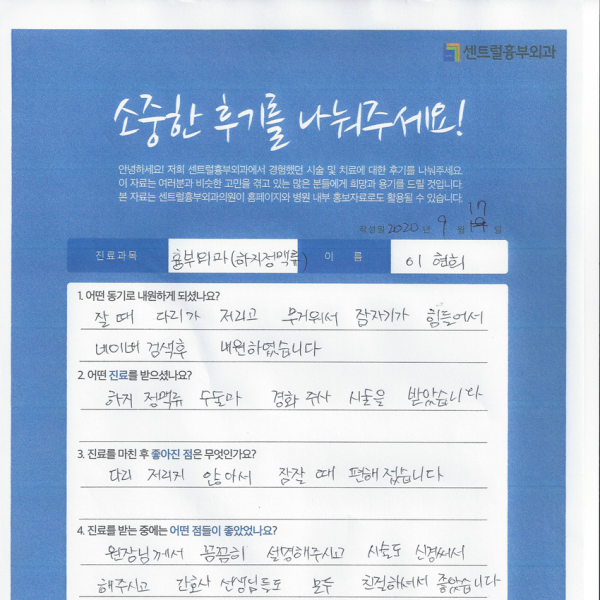 센트럴흉부외과
소중한 후기를 나눠주세요!
안녕하세요! 저희 센트럴흉부외과에서 경험했던 시술 및 치료에 대한 후기를 나눠주세요.
이 자료는 여러분과 비슷한 고민을 겪고 있는 많은 분들에게 희망과 용기를 드릴 것입니다.
본 자료는 센트럴흉부외과의원이 홈페이지와 병원 내부 홍보자료로도 활용될 수 있습니다.
작성일 2020 년 9 월 17 일
진료과목 흉부외과(하지정맥류) 이 름 이현희
1. 어떤 동기로 내원하게 되셨나요?
잘 때 다리가 저리고 무거워서 잠자기가 힘들어서
네이버 검색후 내원하였습니다
2. 어떤 진료를 받으셨나요?
하지 정맥류 수술마 경화 주사 시술을 받았습니다
3. 진료를 마친 후 좋아진 점은 무엇인가요?
다리 저리지 않아서 잠잘 때 편해졌습니다
4. 진료를 받는 중에는 어떤 점들이 좋았었나요?
원장님께서 꼼꼼히 설명해주시고 시술도 신경써서
해주시고 간호사 선생님들도 모두 친절하셔서 좋았습니다